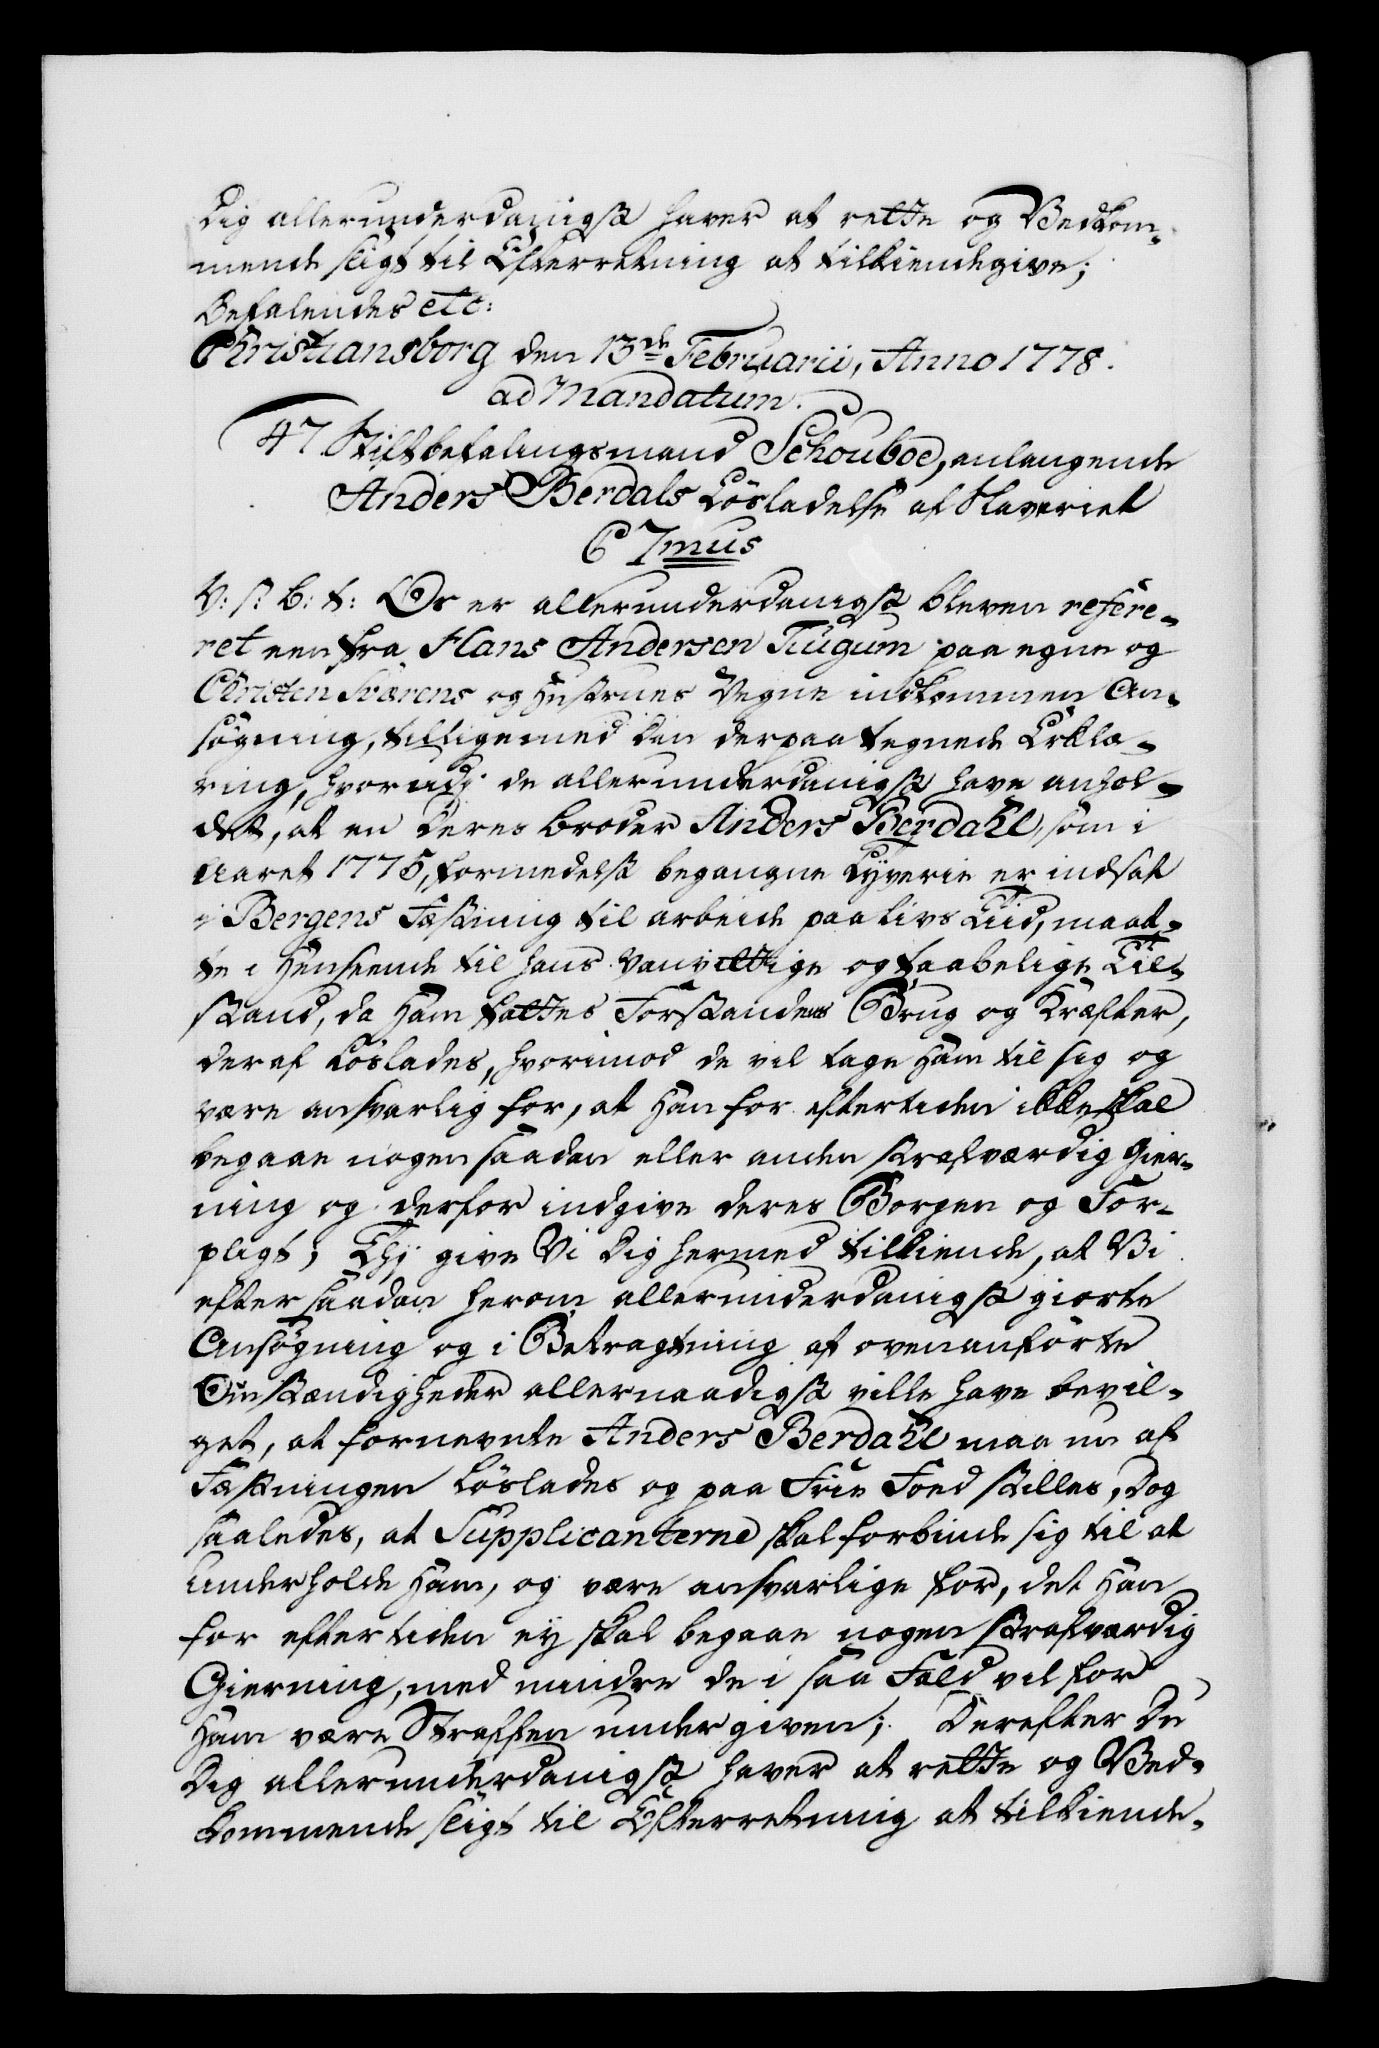 Dig allerunderdanigst haver at rette og Vedkom-
mende sligt til Efterretning at tilkiendegive;
Befalendes etc:
Christiansborg den 13de Februarii, Anno 1778.
ad Mandatum.
47 Stiftbefalingsmand Schouboe, anlangende
Anders Berdals Lösladelse af Slaveriet
C 7mus
V: s: b: t: Os er allerunderdanigst bleven refere-
ret een fra Hans Andersen Tiugum paa egne og
Christen Sværens og Hustrues Vegne indkommen An-
søgning, tilligemed den derpaa tegnede Erklæ-
ring, hvorudj de allerunderdanigst have anhol-
det, at en deres broder Anders Berdahl, som i
Aaret 1775, formedelst begangne Tyverie er indsat
i Bergens Fæstning til arbeide paa livs Tiid, maat-
te i Henseende til hans vanvittige og taabelige Til-
stand, da Ham fattes Forstandens Brug og Kræfter,
deraf löslades, hvorimod de vil tage Ham til sig og
være ansvarlig for, at Han for eftertiden ikke skal
begaae nogen saadan eller anden strafværdig Gier-
ning og derfor indgive deres Borgen og For-
pligt; Thj give Vi Dig hermed tilkiende, at Vi
efter saadan herom allerunderdanigst giorte
Ansøgning og i Betragtning af ovenanførte
Omstændigheder allernaadigst ville have bevil-
get, at fornevnte Anders Berdahl maa nu af
Fæstningen löslades og paa Frie Foed stilles, Dog
saaledes, at Supplicanterne skal forbinde sig til at
underholde Ham, og være ansvarlige for, det Han
for eftertiden ey skal begaae nogen strafværdig
Gierning, med mindre de i saa Fald vil for
Ham være Straffen undergiven; Derefter Du
Dig allerunderdanigst haver at rette og Ved-
kommende sligt til Efterretning at tilkiende-